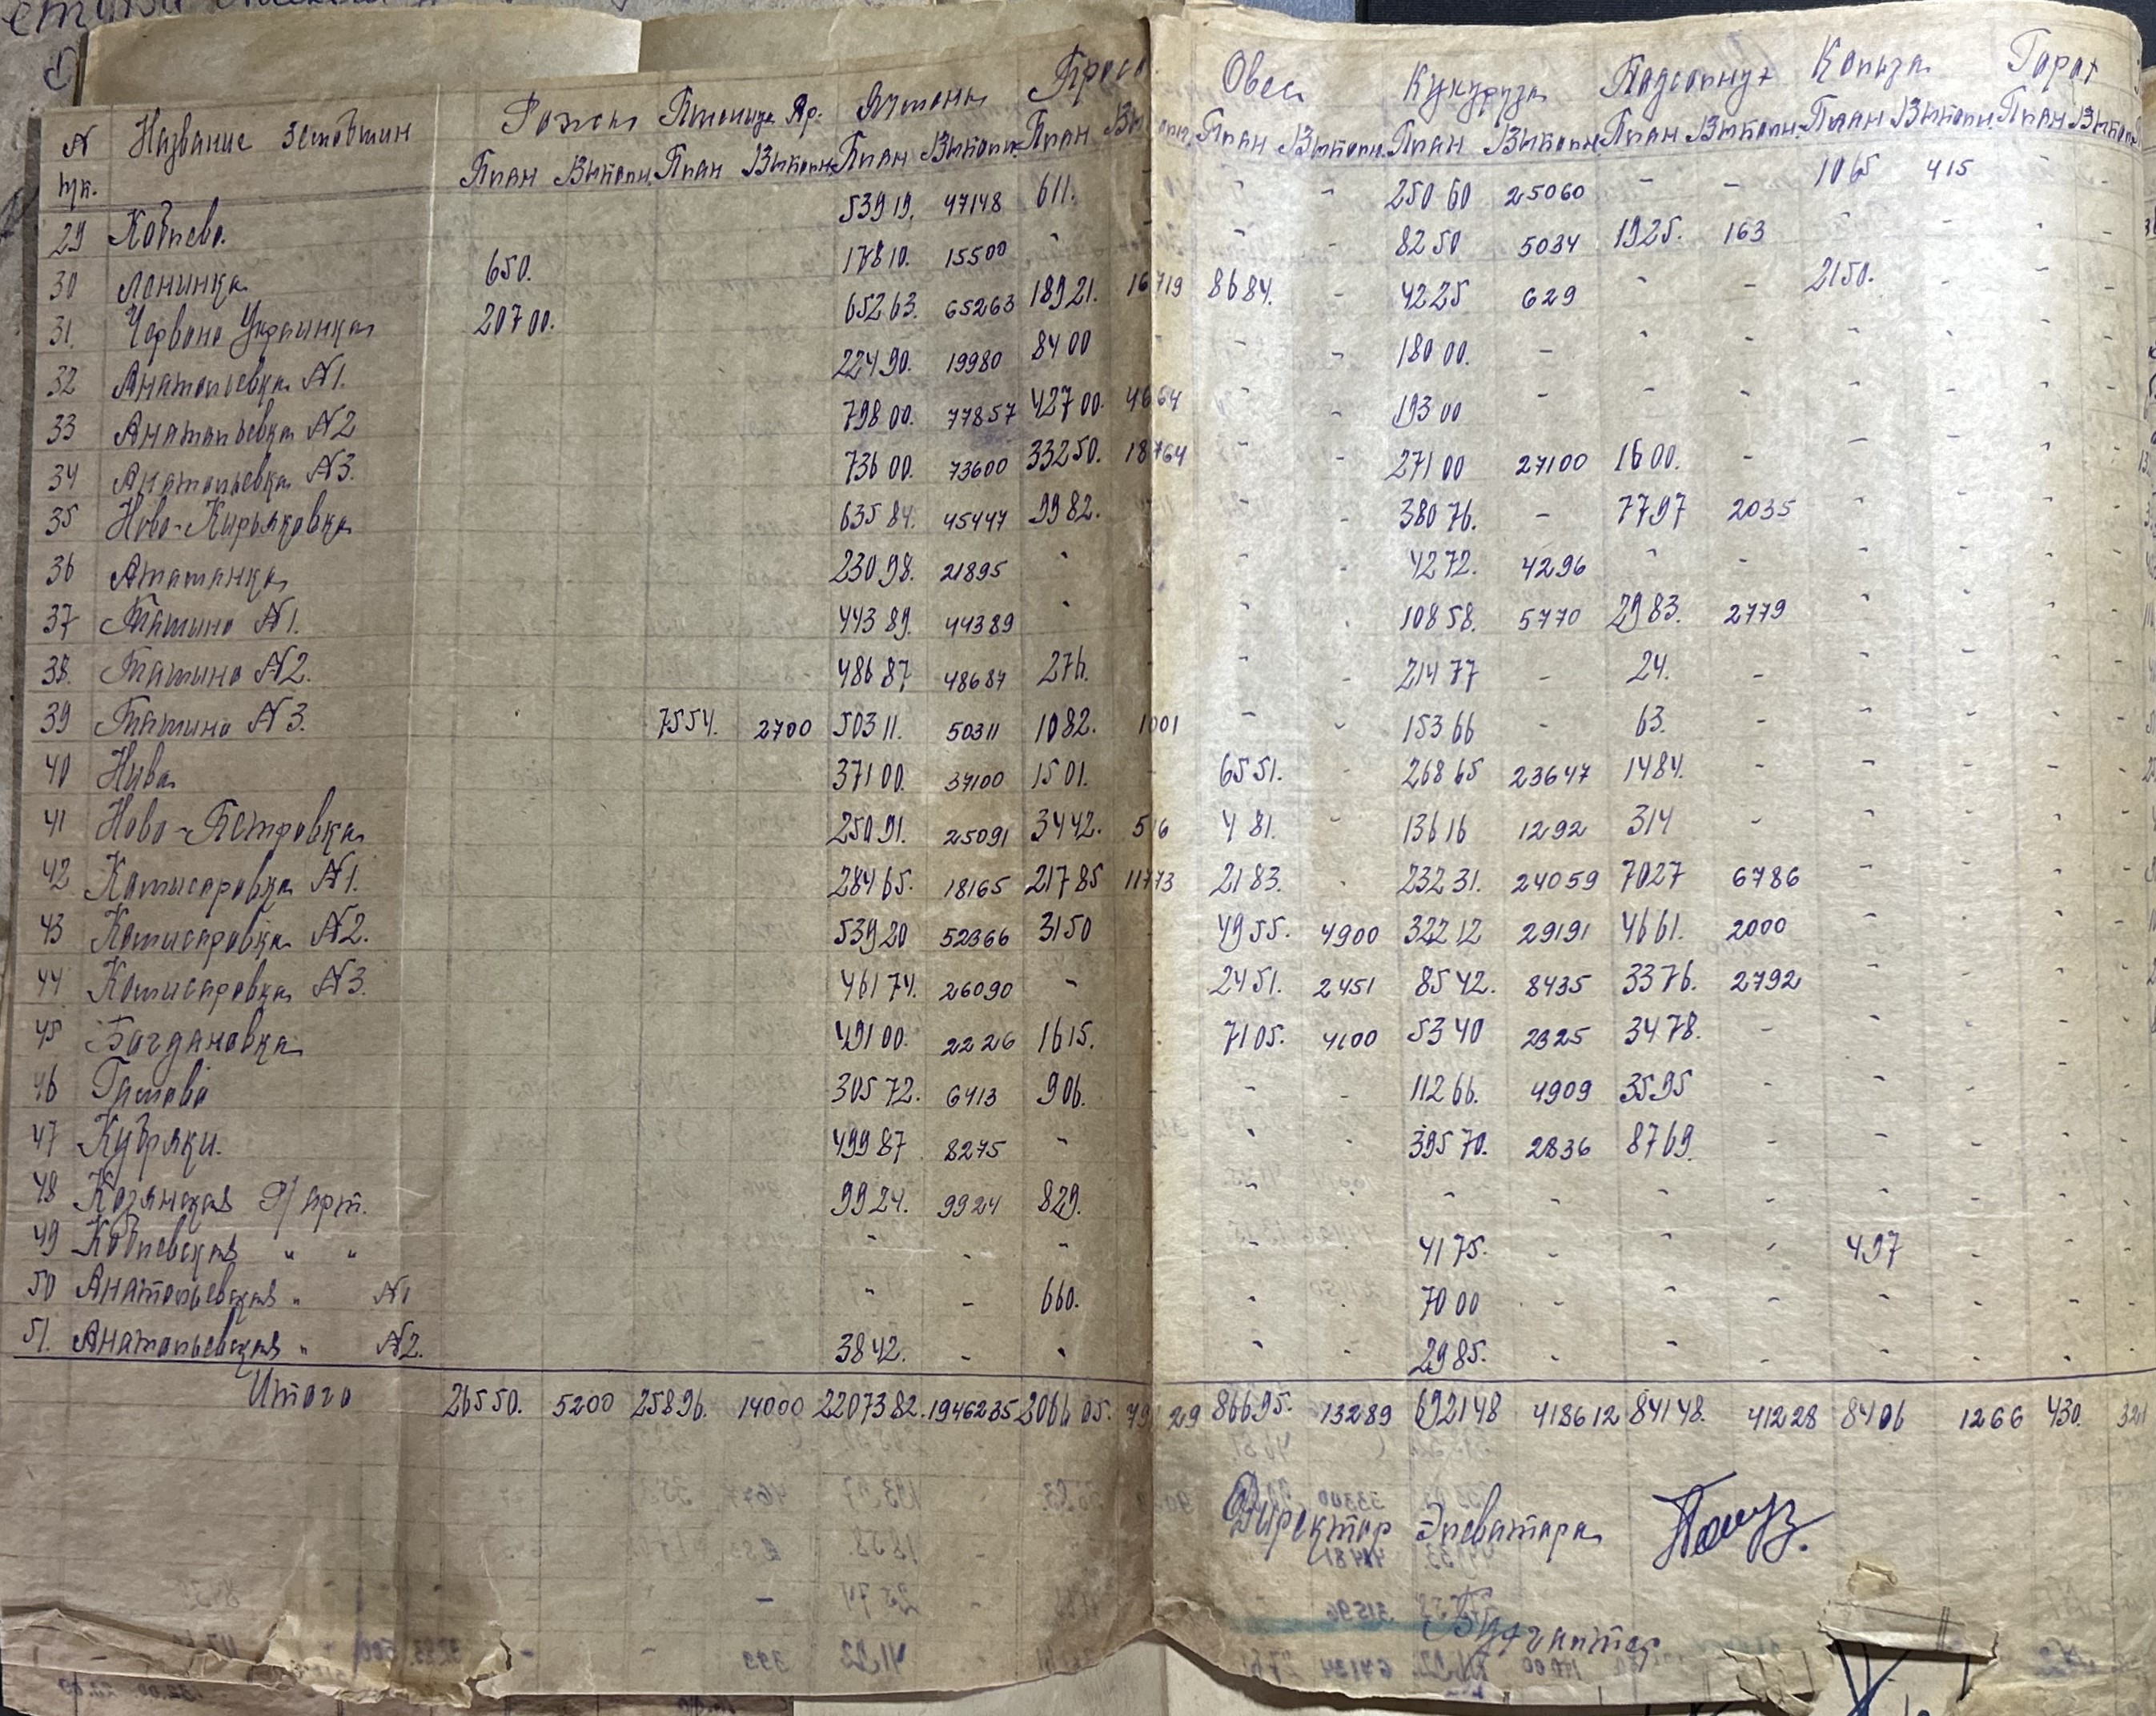 N Название земобщин Рожь Пшеница Яр. Ячмень Просо Овес Кукуруза Подсолнух Кользa Горох
тк. План Выполн. План Выполн. План Выполн. План План Выполн. План Выполн. План Выполн. План Выполн. План Выполн.
29 Коблево. 53919. 47148 611. - - 25060 25060 - - 1065 415 - -
30 Лонинка 650. 17810. 15500 - - - - 8250 5034 1925. 163 - - - -
31. Червона Украинка 20700. 65263. 65263 18921. 16719 8684. - 4225 629 - - 2150. - -
32 Анатольевка N1. 22490. 19980 8400 - - - 18000. - - - - - - -
33 Анатольевка N2 79800. 77857 42700. 4664 - - 19300 - - - - - -
34 Анатольевка N3. 73600. 73600 33250. 18764 - - 27100 27100 1600. - - - - -
35 Ново-Кирьяковка 63584. 45447 9982. - - 38076. - 7797 2035 - - - -
36 Аташанка 23098. 21895 - - - 4272. 4296 - - - - - -
37 Ташино N1. 44389. 44389 - - - - 10858. 5770 2983. 2779 - - - -
38. Ташино N2. 48687 48687 276. - - - 21477 - 24. - - - - -
39 Ташино N3. 7554. 2700 50311. 50311 1082. 1001 - - 15366 - 63. - - - - -
40 Нива 37100. 37100 1501. - 6551. - 26865 23647 1484. - - - - -
41 Ново-Петровка 25091. 25091 3442. 516 481. - 13616 1292 314 - - - - -
42 Комисаровка N1. 28465. 18165 21785 11773 2183. - 23231. 24059 7027 6786 - - - -
43 Комисаровка N2. 53920 52366 3150 4955. 4900 32212 29191 4661. 2000 - - - -
44 Комисаровка N3. 46174. 26090 - 2451. 2451 8542. 8435 3376. 2792 - - - -
45 Богдановка 49100. 2226 1615. 7105. 4100 5340 2325 3478. - - - - -
46 Гамово 30572. 6413 906. - - - 11266. 4909 3595 - - - - -
47 Кубряки. 49987 8275 - - - 39570. 2836 8769. - - - - -
48 Козянская Р/арт. 9924. 9924 829. - - - - - - - - - -
49 Коблевская " " - - - - - 4175. - - - 497 - - -
50 Анатольевская " N1 - - 660. - - 7000 - - - - - - -
51. Анатольевская " N2. 3842. - - - - 2985. - - - - - - -
Итого 26550. 5200 25896. 14000 2207382. 1946235 206605. 86695. 13289 692148 418612 84148. 41228 8406 1266 430.
Директор Элеватора
Бухгалтер